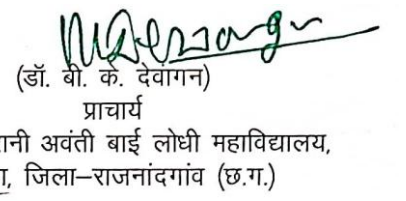 (डॉ. बी. के. देवांगन)
प्राचार्य
अवंती बाई लोधी महाविद्यालय,
जिला–राजनांदगांव (छ.ग.)